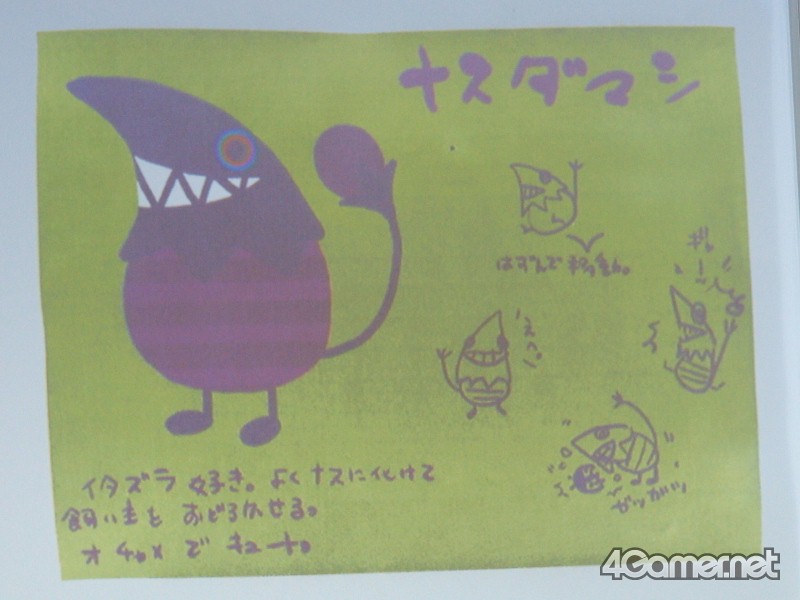 ナスダマシ
はずんで移動。
えへ。
ガツガツ
イタズラ好き。よくナスに化けて
飼い主を おどろかせる。
オチャメで キュート。
4Gamer.net